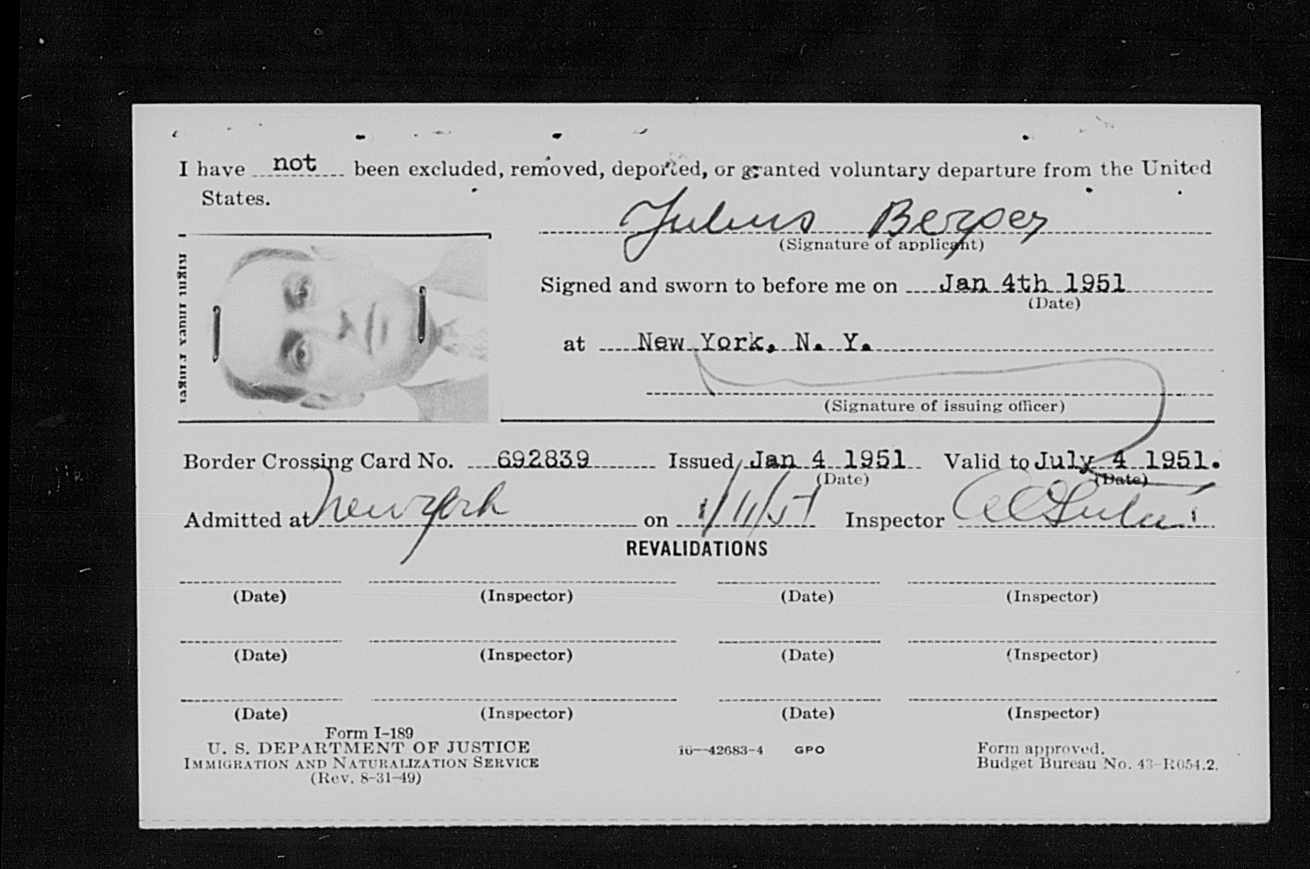 I have not been excluded, removed, deported, or granted voluntary departure from the United
States.
Julius Berger
(Signature of applicant)
Right Index Finger
Signed and sworn to before me on Jan 4th 1951
(Date)
at New York, N. Y.
(Signature of issuing officer)
Border Crossing Card No. 692839 Issued Jan 4 1951 Valid to July 4 1951.
(Date) (Date)
Admitted at New York on 1/11/51 Inspector
REVALIDATIONS
(Date) (Inspector) (Date) (Inspector)
(Date) (Inspector) (Date) (Inspector)
(Date) (Inspector) (Date) (Inspector)
Form I-189
U. S. DEPARTMENT OF JUSTICE
IMMIGRATION AND NATURALIZATION SERVICE
(Rev. 8-31-49)
16—42683-4 GPO
Form approved.
Budget Bureau No. 43-R054.2.